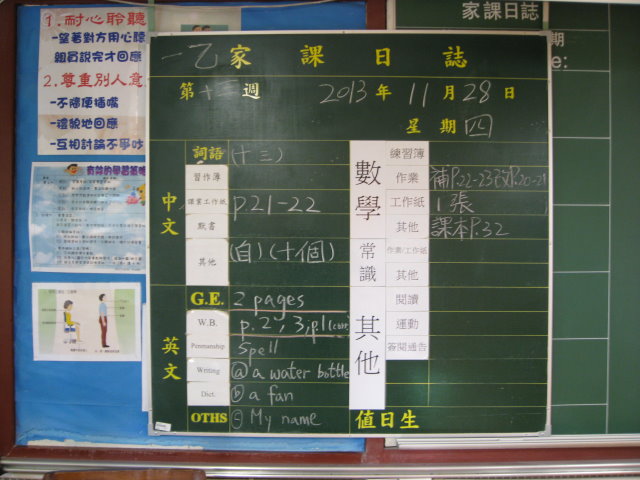 1.耐心聆聽
-望著對方用心聽
親員說完才回應
2.尊重別人意
-不隨便插嘴
-禮貌地回應
-互相討論不爭吵
有效的學習策略
家課日誌
期
e:
一乙家課日誌
第十三週 2013年11月28日
星期四
中文
詞語 (十三)
習作簿
課業工作紙 P.21-22
默書
其他 (自)(十個)
英文
G.E. 2 pages
W.B. p.2, 3, p1(corr
Penmanship Spell
Writing ⓐ a water bottle
Dict. ⓑ a fan
OTHS ⓒ My name
數學
練習簿
作業 補P.22-23改P.20-21
工作紙 1張
其他 課本P.32
常識
作業/工作紙
其他
其他
閱讀
運動
答閱通告
值日生